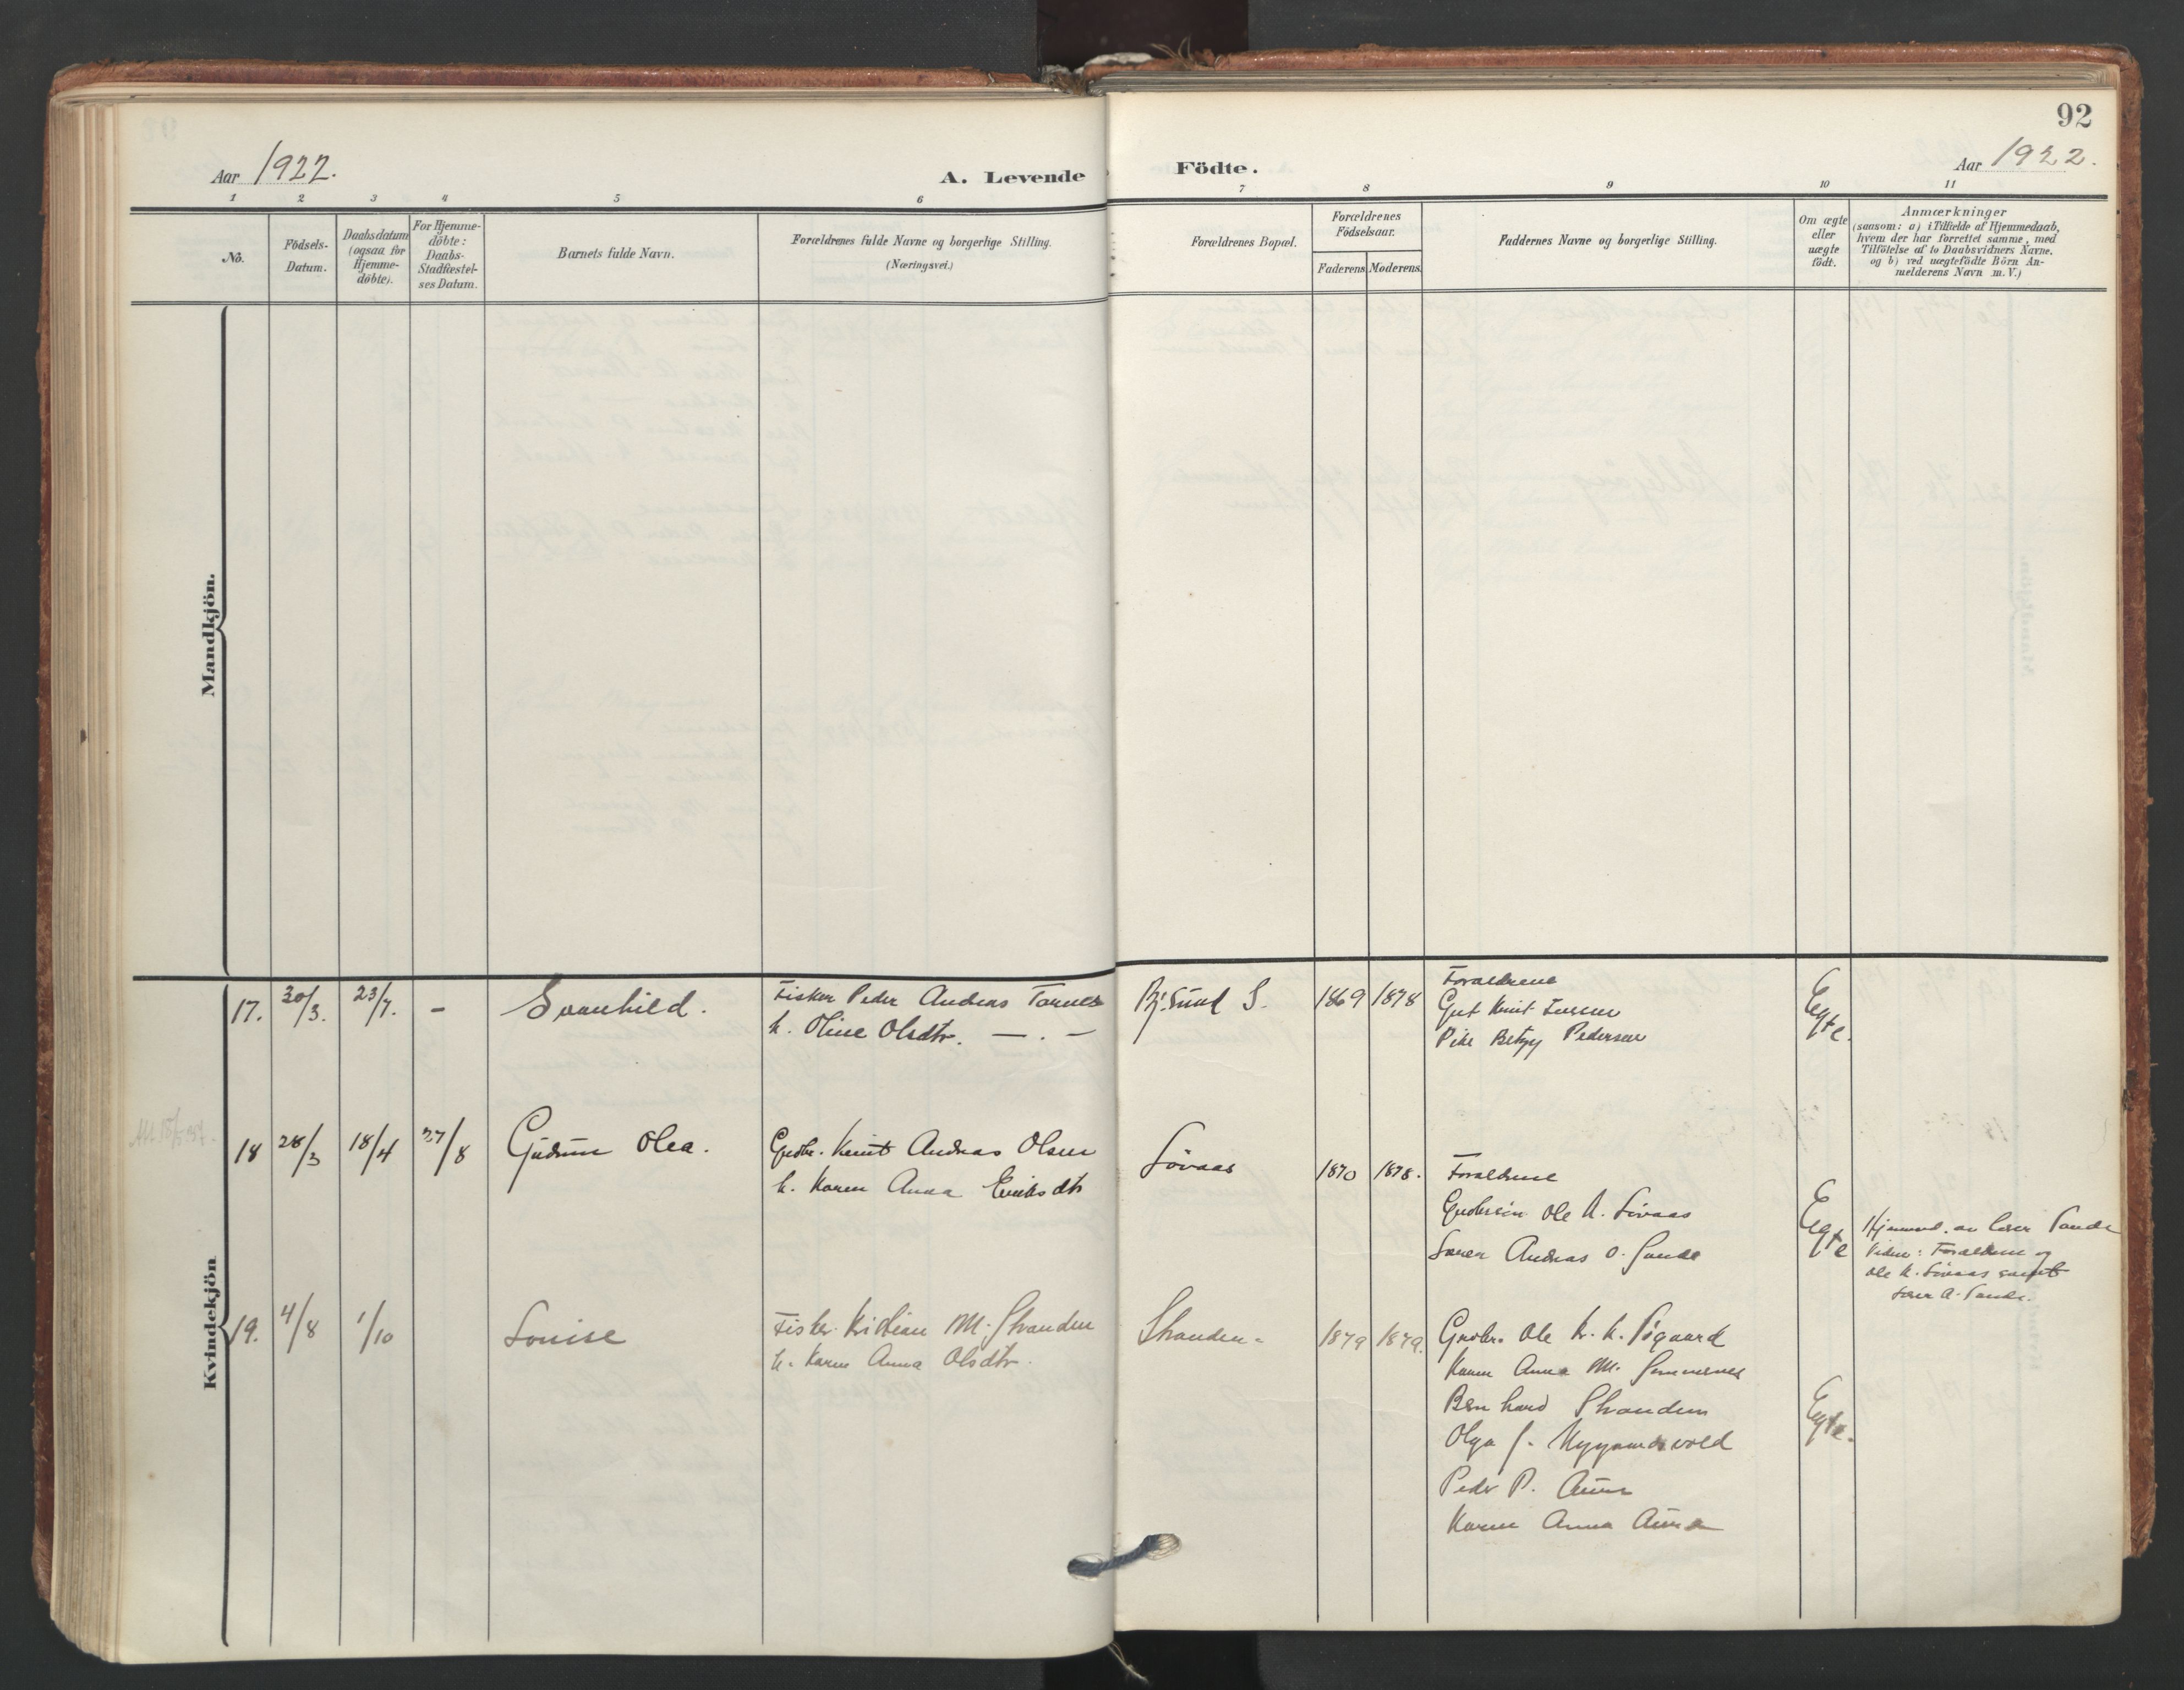 92
Aar 1922.
A. Levende
Födte.
Aar 1922.
1 2 3 4 5 6 7 8 9 10 11
No.
Födsels-
Datum.
Daabsdatum
(ogsaa for
Hjemme-
döbte).
For Hjemme-
döbte:
Daabs-
Stadfæstel-
ses Datum.
Barnets fulde Navn.
Forældrenes fulde Navne og borgerlige Stilling.
(Næringsvei.)
Forældrenes Bopæl.
Forældrenes
Födselsaar.
Faderens. Moderens.
Faddernes Navne og borgerlige Stilling.
Om ægte
eller
uægte
födt.
Anmærkninger
(saasom: a) i Tilfælde af Hjemmedaab,
hvem der har forrettet samme, med
Tilföielse af to Daabsvidners Navne.
og b) ved uægtefödte Börn An-
melderens Navn m.V.)
Mandkjön.
Kvindekjön
17. 30/3. 23/7. - Svanhild.
Fisker Peder Andreas Tarnes
h. Oline Olsdtr. — . —
Bj.sund S. 1869 1878
Forældrene
Gut Knut Iversen
Pike Betzy Pedersen
Egte.
18 28/3 18/4 27/8 Gudrun Olea.
Gaardbr. Knut Andreas Olsen
h. Karen Anna Eriksdtr
Lövaas 1870 1878.
Forældrene
Ole K. Lövaas
Lærer Andreas O. Sande
Egte
Hjemmed. av lærer Sande
Vidner: Forældrene og
Ole K. Lövaas samt
lærer A. Sande.
19. 4/8 1/10 Louise
Fisker Kristian M. Stranden
h. Karen Anna Olsdtr.
Stranden 1879 1879.
Gaardbr. Ole K. K.
Karen Anna M.
Bernhard Stranden
Olga J.
Egte.
Peder P. Aune
Karen Anna Aune